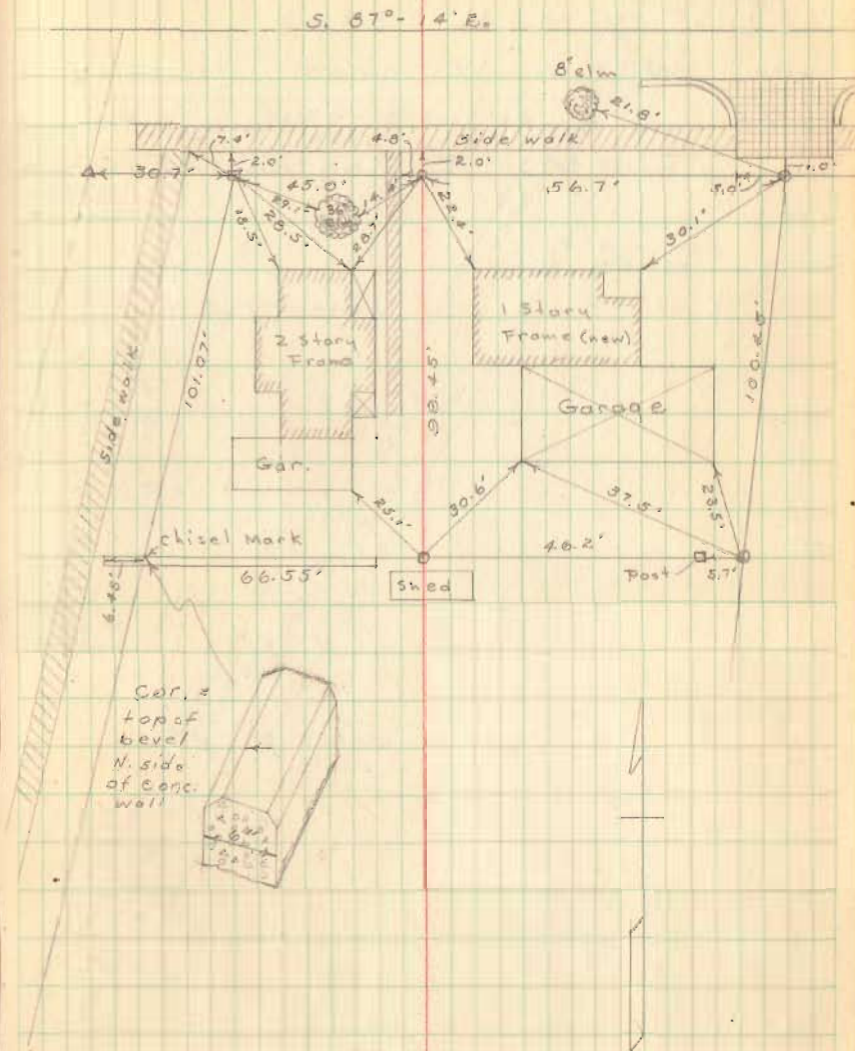 S. 87°-14' E.
8" elm
21.8'
7.4'
4.8'
Side walk
2.0'
2.0'
1.0'
30.7'
45.0'
56.7'
5.0'
29.1
18.5'
28.5'
28.7'
22.4'
30.1'
2 Story
Frame
1 Story
Frame (new)
Side walk
101.07'
98.45'
100.25'
Garage
Gar.
25.1'
30.6'
37.5'
23.5'
Chisel Mark
66.55'
46.2'
Post
5.7'
Shed
6.48'
Cor. =
top of
bevel
N. side
of conc.
wall
6"